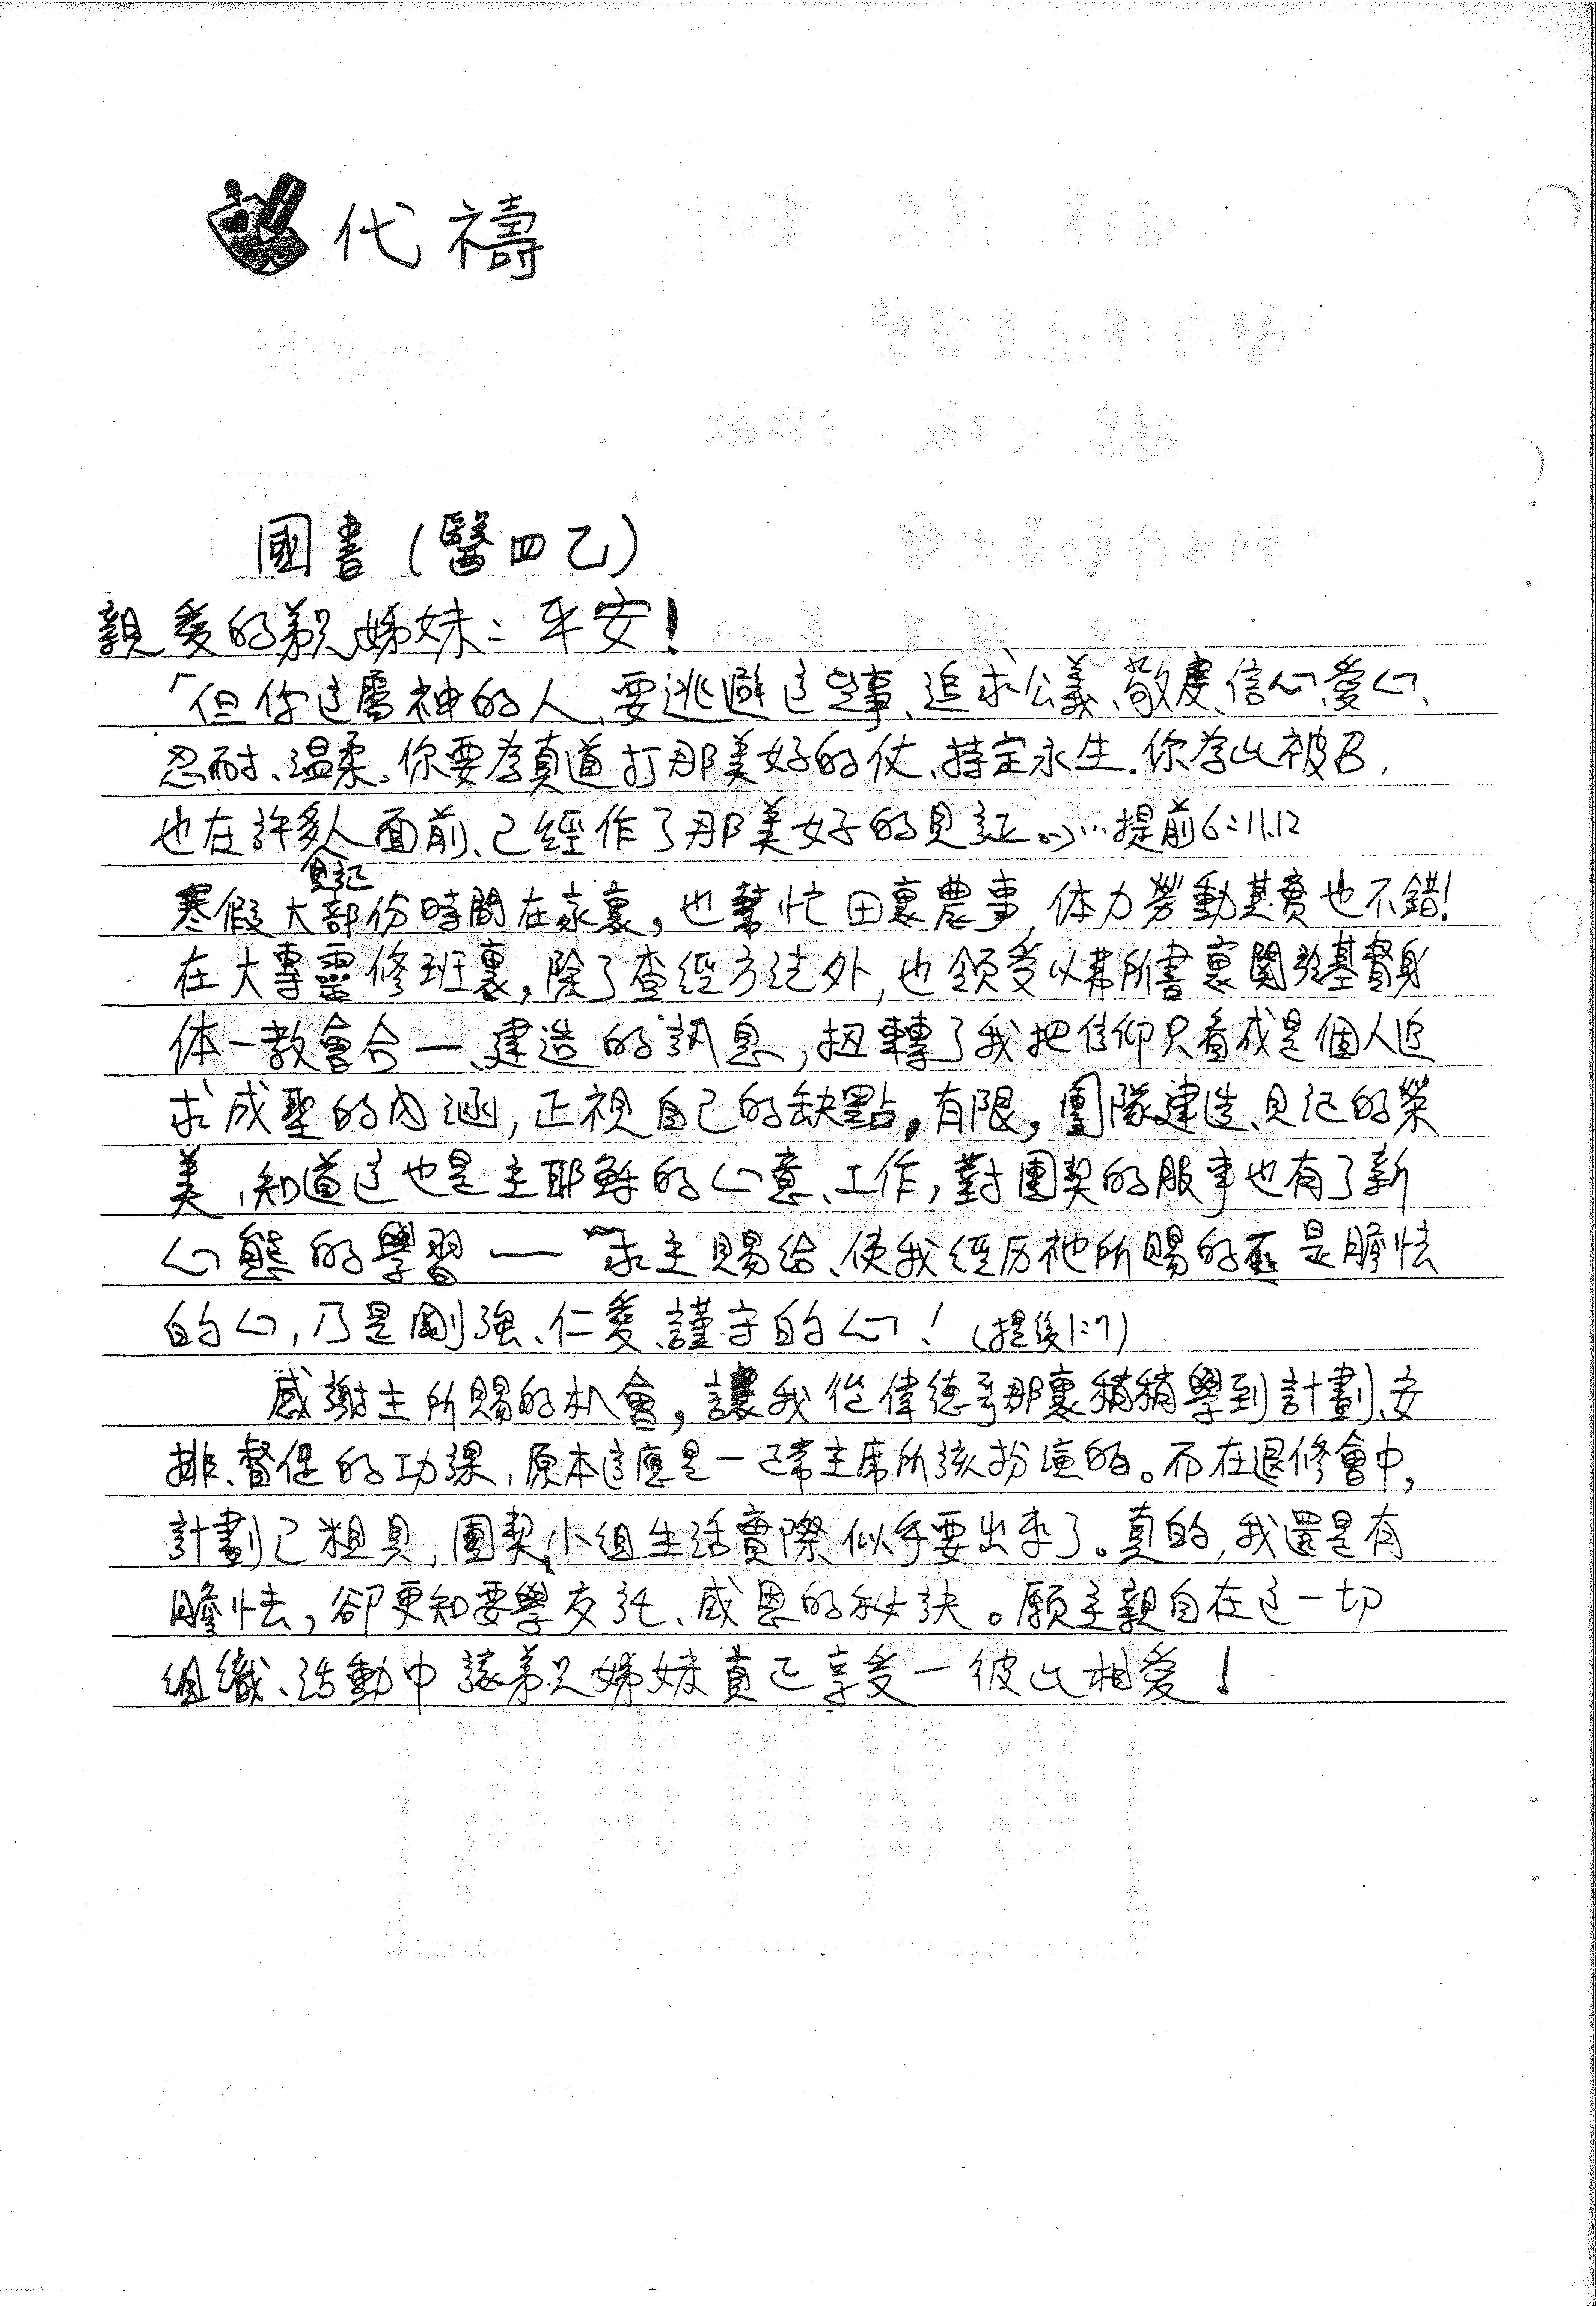 代禱
國書(醫四乙)
親愛的弟兄姊妹:平安!
「但你這屬神的人、要逃避這些事、追求公義、敬虔、信心、愛心、
忍耐、溫柔。你要為真道打那美好的仗、持定永生.你為此被召,
也在許多人面前、已經作了那美好的見証。」…提前6:11.12
寒假大部份時間在家裏,也幫忙田裏農事,体力勞動其實也不錯!
在大專靈修班裏,除了查經方法外,也領受以弗所書裏関於基督身
体一教會合一、建造的訊息,扭轉了我把信仰只看成是個人追
求成聖的內涵,正視自己的缺點,有限,團隊建造、見証的榮
美,知道這也是主耶穌的心意、工作,對團契的服事也有了新
心態的學習——求主賜給、使我經历祂所賜的不是膽怯
的心,乃是剛強、仁愛、謹守的心!(提後1:7)
感謝主所賜的机會,讓我從偉德哥那裏稍稍學到計劃、安
排、督促的功課,原本這應是一正常主席所該扮演的。而在退修會中,
計劃已粗具,團契、小組生活實際似乎要出來了。真的,我還是有
膽怯,卻更知要學交託、感恩的秘訣。願主親自在這一切
組織、活動中讓弟兄姊妹真正享受一彼此相愛!